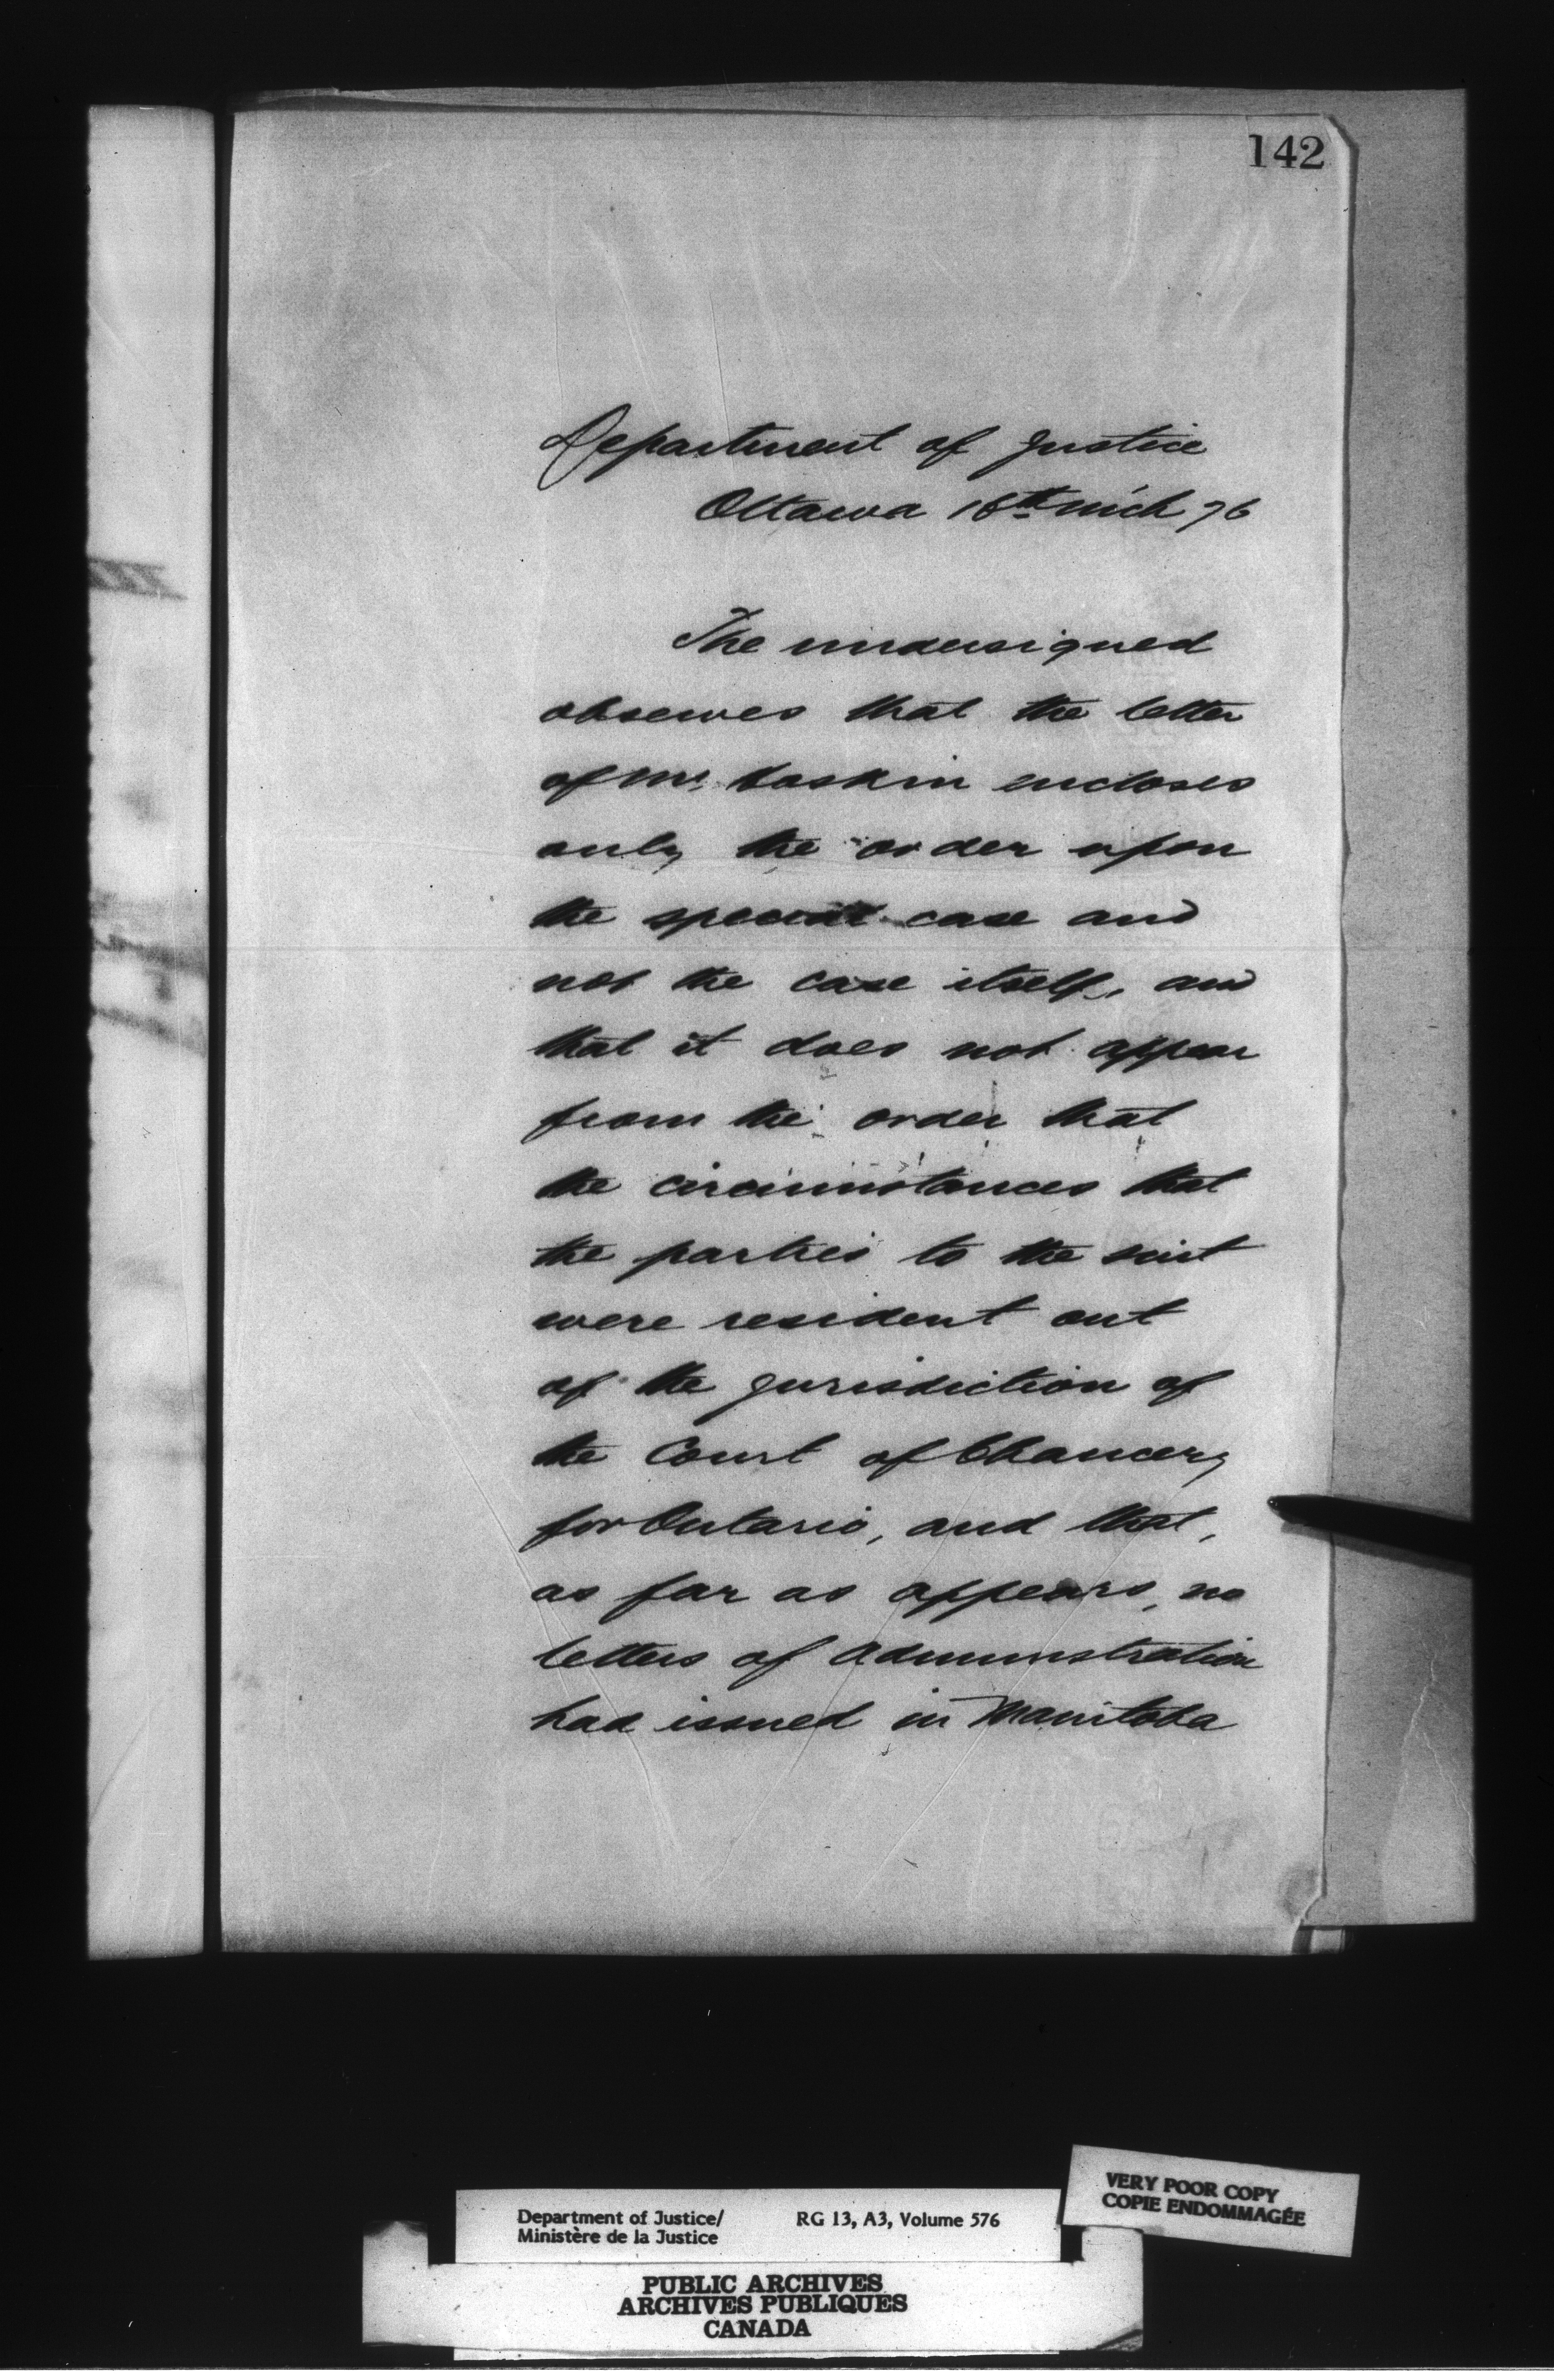 142
Department of Justice
Ottawa 18th Mch 76
The undersigned
observes that the letter
of Mr. encloses
only the order upon
the special case and
not the case itself, and
that it does not appear
from the order that
the circumstances that
the parties to the suit
were resident out
of the jurisdiction of
the Court of Chancery
for Ontario, and that,
as far as appears, no
letters of administration
had issued in Manitoba
Department of Justice/ RG 13, A3, Volume 576
Ministère de la Justice
VERY POOR COPY
COPIE ENDOMMAGÉE
PUBLIC ARCHIVES
ARCHIVES PUBLIQUES
CANADA